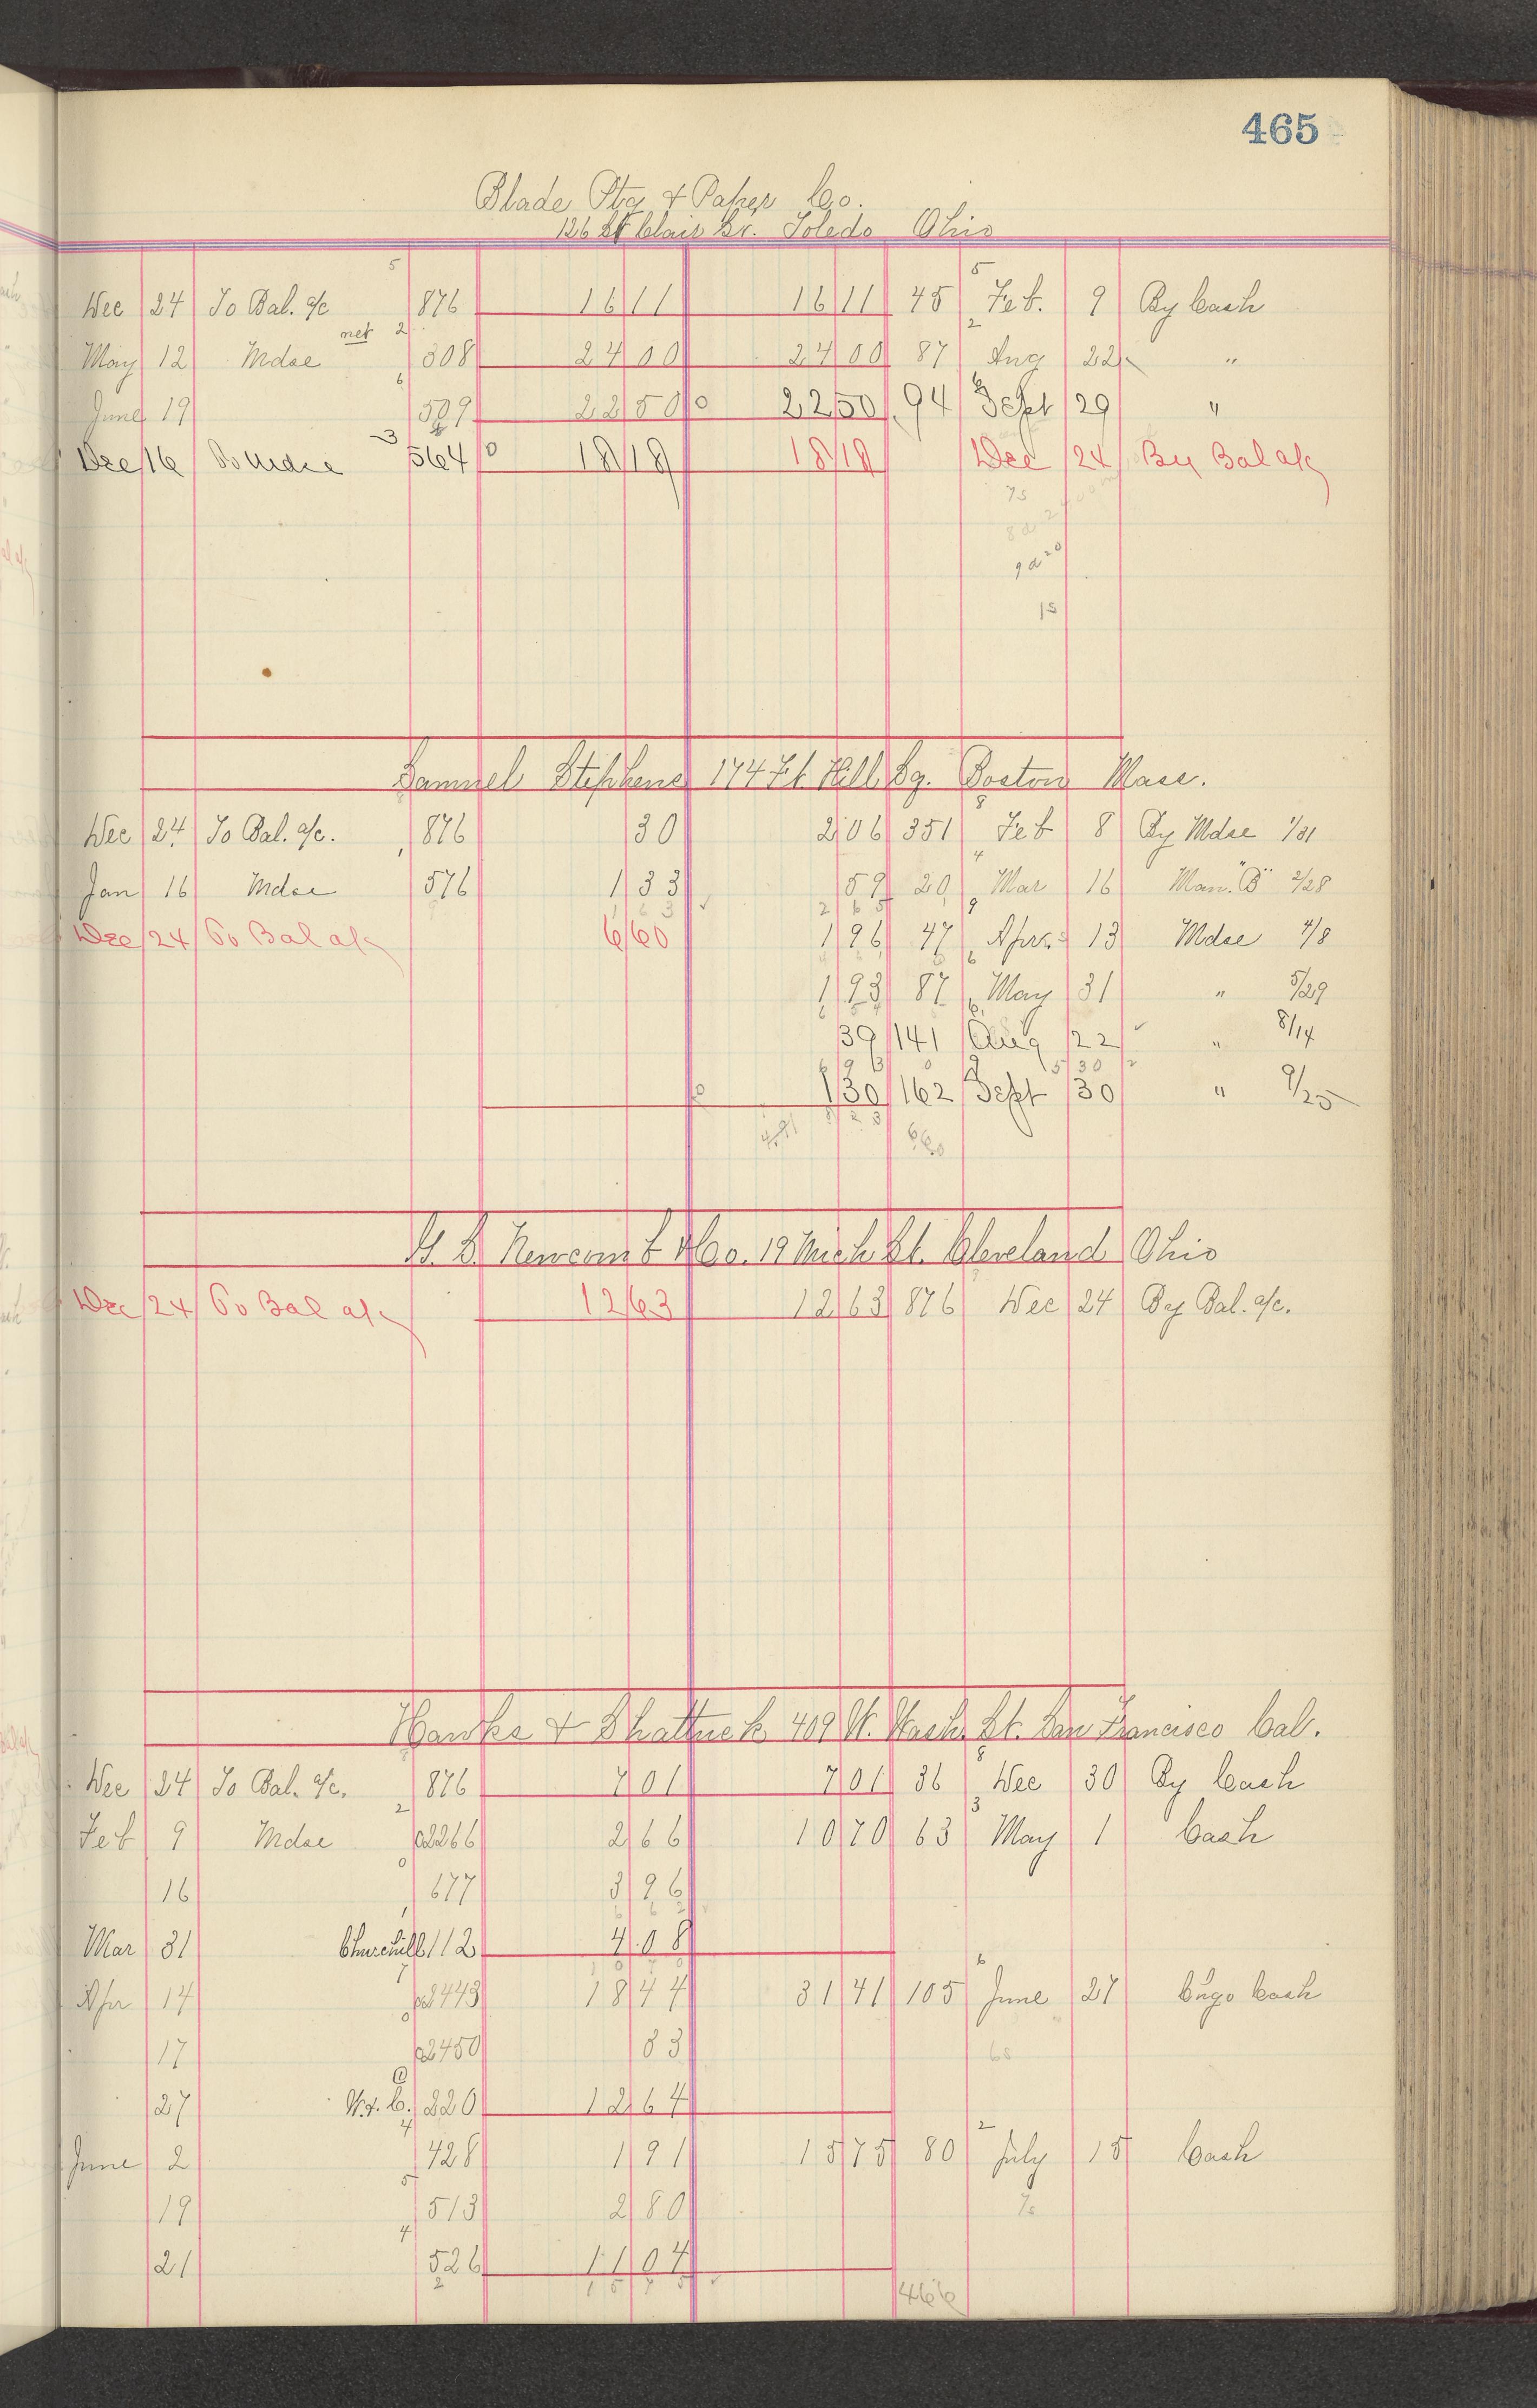 465
Blade Ptg & Paper Co.
126 St Clair St. Toledo Ohio
Dec 24 To Bal. a/c 876 16 11 16 11 45 Feb. 9 By Cash
May 12 Mdse net 308 24 00 24 00 87 Aug 22 "
June 19 509 22 50 22 50 94 Sept 29 "
Dec 16 To Mdse 564 18 19 18 19 Dec 24 By Bal a/c
Samuel Stephens 174 Ft. Hill Sq. Boston Mass.
Dec 24 To Bal. a/c. 876 30 2 06 351 Feb 8 By Mdse 1/31
Jan 16 Mdse 576 1 33 59 20 Mar 16 Man. "B" 2/28
Dec 24 To Bal a/c 6 60 1 96 47 Apr. 13 Mdse 4/8
1 93 87 May 31 " 5/29
39 141 Aug 22 " 8/14
1 30 162 Sept 30 " 9/25
660
H. B. Newcomb & Co. 19 Mich. St. Cleveland Ohio
Dec 24 To Bal a/c 12 63 12 63 876 Dec 24 By Bal. a/c.
Hawks & Shattuck 409 W. Wash. St. San Francisco Cal.
Dec 24 To Bal. a/c. 876 7 01 7 01 36 Dec 30 By Cash
Feb 9 Mdse 266 2 66 10 70 63 May 1 Cash
16 677 3 96
Mar 31 Churchill 112 4 08
Apr 14 443 18 44 31 41 105 June 27 Cash
17 450 83
27 W.F. C. 220 12 64
June 2 428 1 91 15 75 80 July 15 Cash
19 513 2 80
21 526 11 04
466